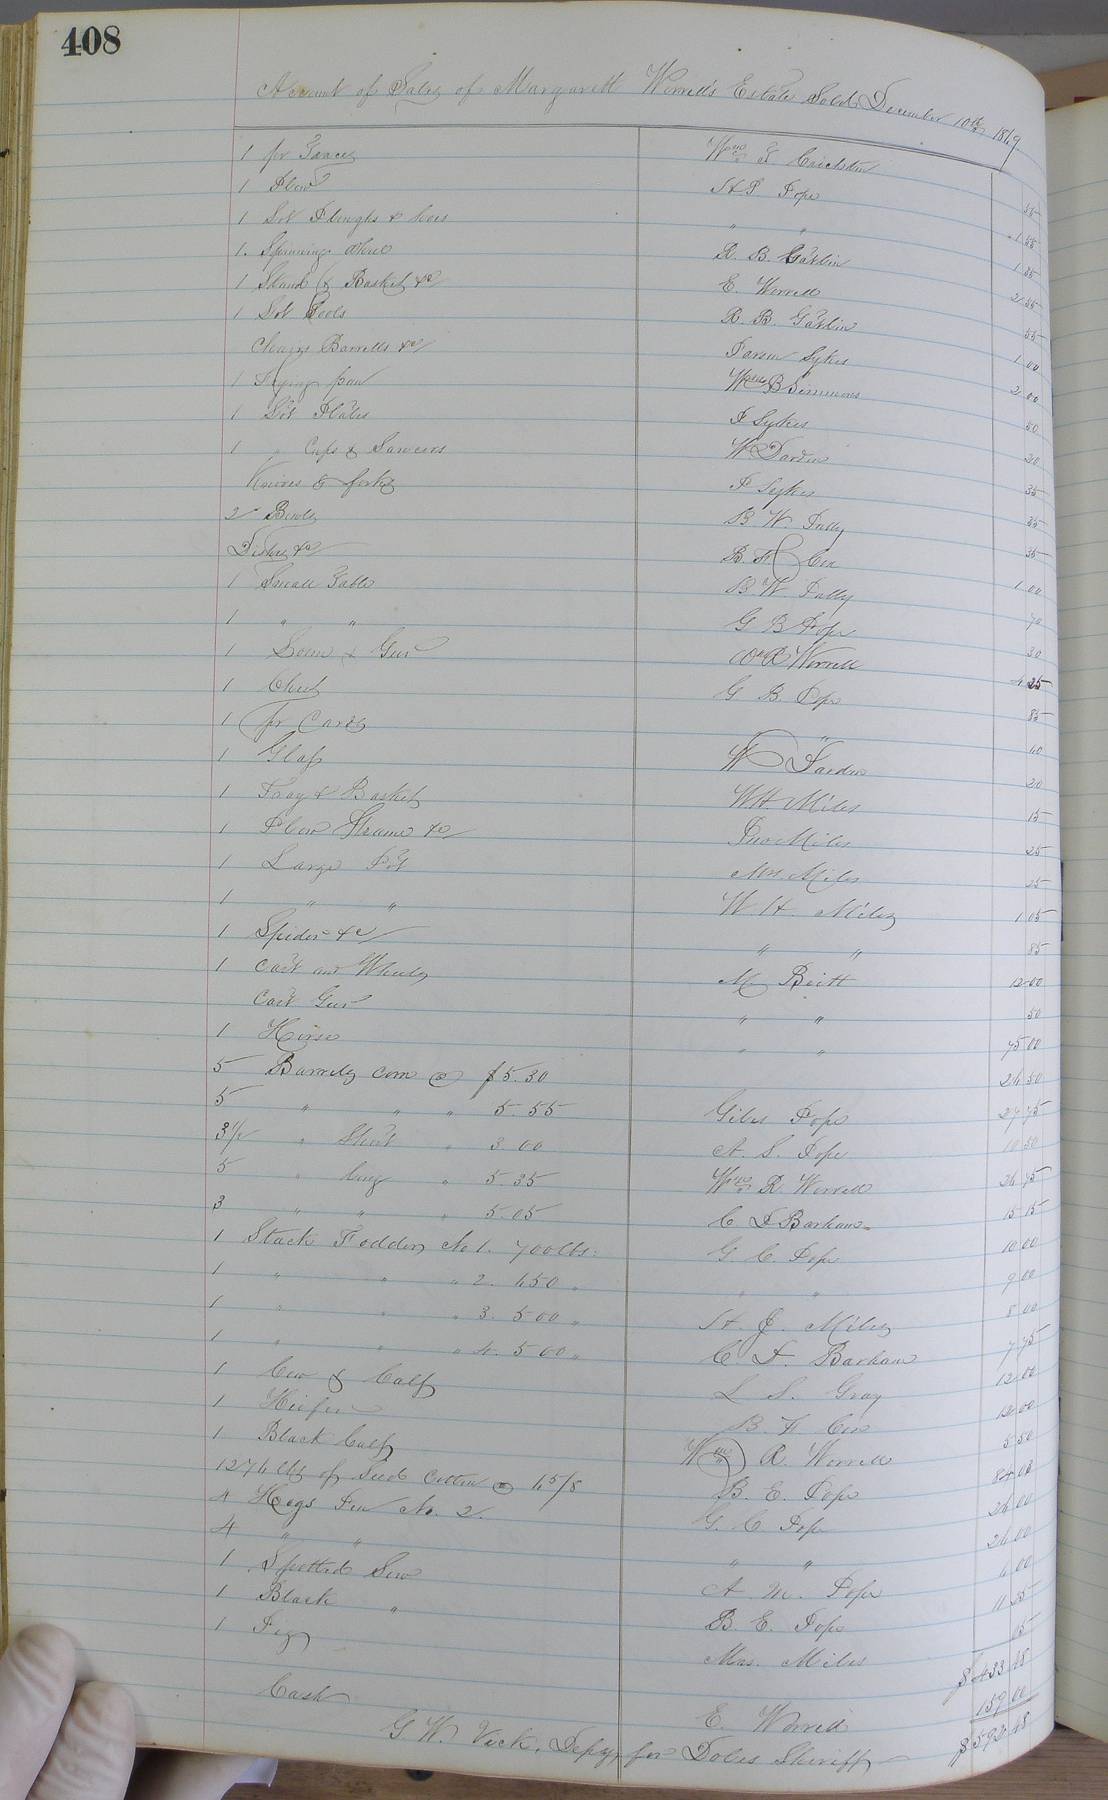 408
Account of Sales of Margarett Worrell's Estate Sold December 10th 1869
1 pr Wm T 55
1 Plow A P Pope 1 55
1 Lot Ploughs & hoes " " 1 35
1 Spinning Wheel R. B. Gatlin 2 35
1 Stand & Basket &c E. Worrell 55
1 Lot Tools R. B. Gatlin 1 00
Chairs Barrells &c Sykes 2 00
1 Frying pan Wm B Simmons 50
1 Lot Plates P Sykes 20
1 " Cups & Sawcers W Darden 35
Knives & forks P Sykes 35
2 Bowls B W. 35
Dishes &c B. F. Cox 1 00
1 Small Table B W 70
1 " " G B Pope 30
1 Loom & Gear Wm R Worrell 4 25
1 Chest G B. Pope 85
1 pr Cards " 40
1 Glass W 20
1 Tray & Basket W H. Miles 15
1 Plow &c Jno Miles 25
1 Large Pot Mrs Miles 25
1 " " W H. Miles 1 05
1 Spider &c " " 85
1 Cart and Wheels M Britt 12 00
Cart Gear " " 50
1 Horse " " 75 00
5 Barrels corn @ $5.30 26 50
5 " " " 5 55 Giles Pope 27 75
3 1/2 " Short " 3 00 A. S. Pope 10 50
5 " long " 5 35 Wm R. Worrell 26 75
3 " " " 5.05 C Barham 15 15
1 Stack Fodder No 1. 700 lbs. G. C. Pope 10 00
1 " " " 2. 650 " " " 9 00
1 " " " 3. 500 " J. Miles 8 00
1 " " " 4. 500 " C Barham 7 75
1 Cow & Calf L S. Gray 12 00
1 Heifer B. F. Cox 12 00
1 Black Calf Wm R. Worrell 5 50
lbs of Seed Cotton @ B. E. Pope
4 Hogs Pen No. 2. G. C Pope 26 00
4 " " " " 26 00
1 Spotted Sow A m. Pope 6 00
1 Black " B. E. Pope 11 25
1 Pig Mrs. Miles 05
$433 48
Cash E. Worrell 159 00
$592 48
G W. Vick, Depy, for Doles Sheriff